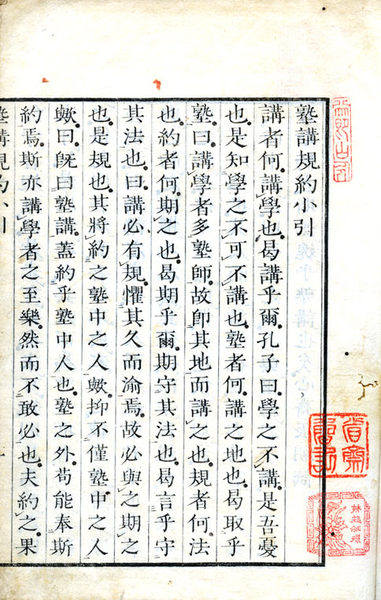 塾講規約小引
講者何講學也曷講乎爾孔子曰學之不講是吾憂
也是知學之不可不講也塾者何講之地也曷取乎
塾曰講學者多塾師故卽其地而講之也規者何法
也約者何期之也曷期乎爾期守其法也曷言乎守
其法也曰講必有規懼其久而渝焉故必與之期之
也是規也其將約之塾中之人歟抑不僅塾中之人
歟曰旣曰塾講蓋約乎塾中人也塾之外苟能奉斯
約焉斯亦講學者之至樂然而不敢必也夫約之果
塾講規約小引